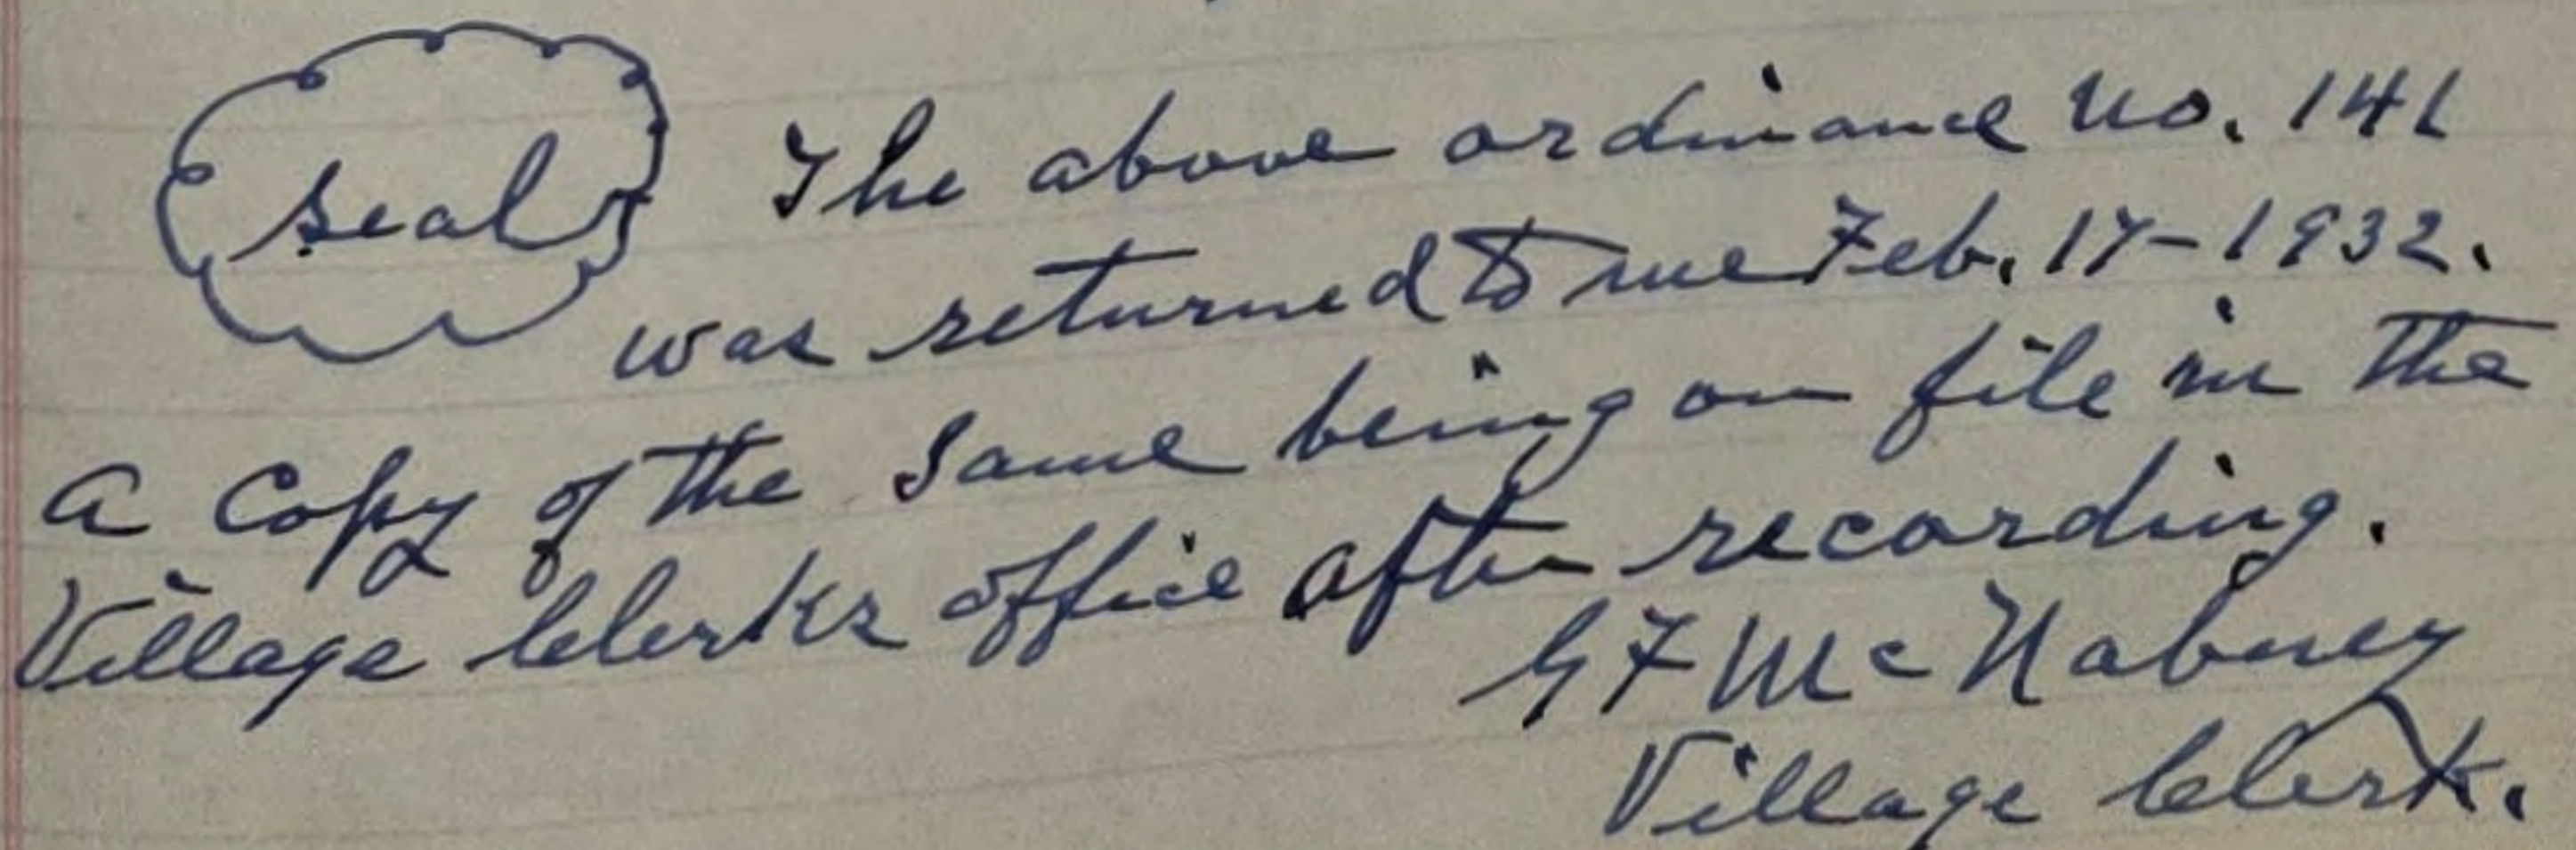 seal
The above ordinance No. 141
was returned to me Feb. 17-1932.
a Copy of the Same being on file in the
Village Clerks office after recording.
G F McNabney
Village Clerk.